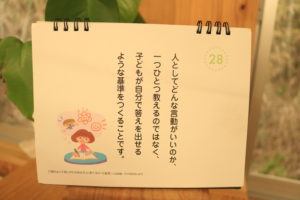 28
人としてどんな言動がいいのか、
一つひとつ教えるのではなく、
子どもが自分で答えを出せる
ような基準をつくることです。